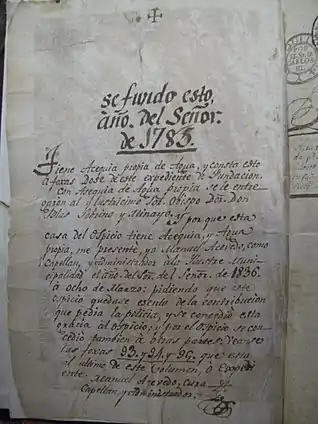 se fundo esto,
año. del Señor.
de 1785.
Tiene Acequia propia de Agua, y consta esto
a foxas Doze de este expediente de Fundacion.
con Azequia de Agua propia se le entre-
garon al Ylustrisimo Sor. Obispo Don. Don
Blas Sobrino y Minayo. y por que esta
casa del Ospicio tiene Azequia, y Agua
propia, me presente, yo Manuel Azevedo, como
Capellan, y Administrador a la Ilustre Muni-
cipalidad el año del Señor de 1836.
à ocho de Marzo: pidiendo que este
ospicio quedase esento de la contribucion
que pedia la policia, y se consedio esta
gracia al ospicio; y por el ospicio se con-
cedio tambien à otras partes: Veanse
las foxas 93. y 94. y 96. que esta
al ultimo de este Volumen, ò Expedi-
ente.
Manuel Azevedo, Cura
Capellan, y Administrador.